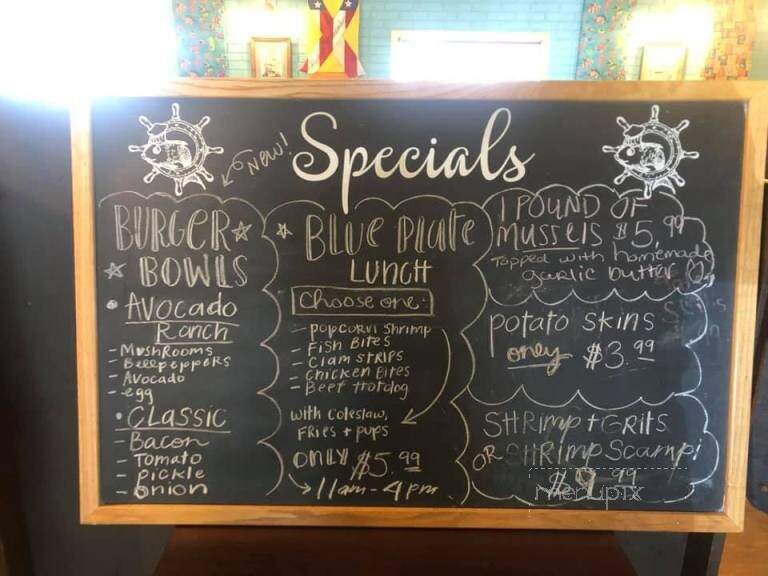 Specials
NEW!
BURGER
BOWLS
• AVOCADO
RANCH
- MUSHROOMS
- Bellpeppers
- Avocado
- egg
• CLASSIC
- Bacon
- Tomato
- pickle
- onion
BLUE PLATE
LUNCH
Choose one:
- popcorn shrimp
- Fish Bites
- Clam strips
- Chicken Bites
- Beef Hotdog
with coleslaw,
FRIES + pups
ONLY $5.99
11am - 4pm
1 POUND OF
Mussels $5.99
Topped with homemade
garlic butter
potato skins
only $3.99
SHRimp + GRitS
OR SHRimp Scampi
$9.99
MenuPix